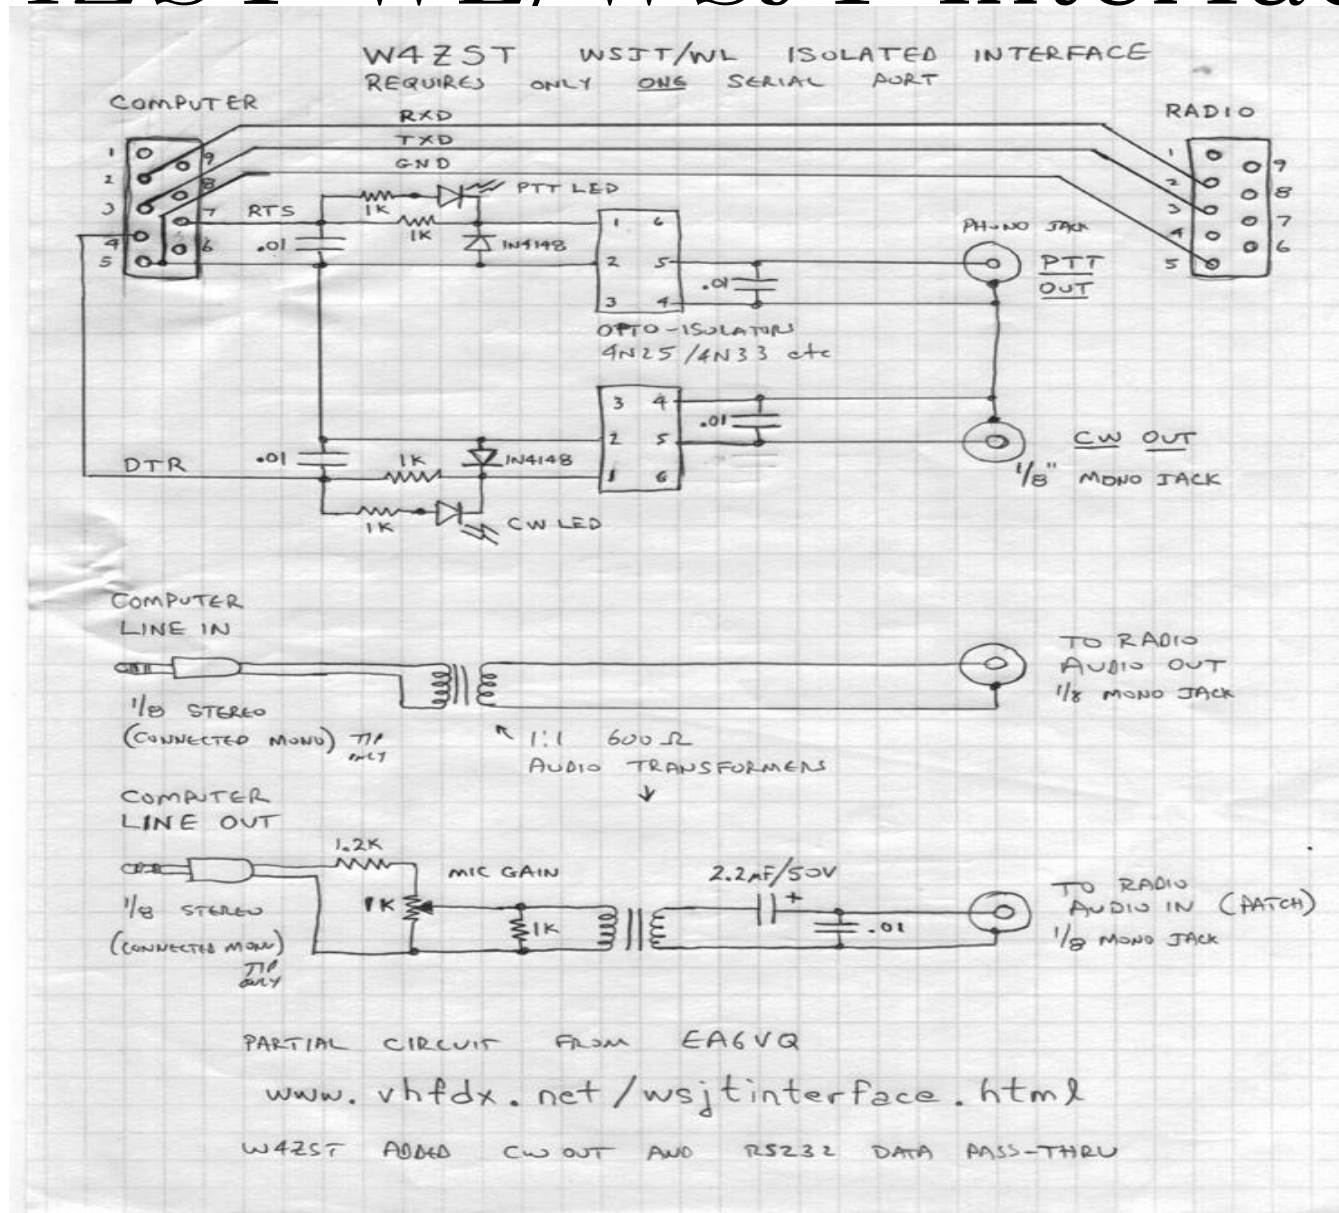 W4ZST WSJT/WL ISOLATED INTERFACE
REQUIRES ONLY ONE SERIAL PORT
COMPUTER
RXD
TXD
GND
RADIO
1
2
3
4
5
9
8
7
6
RTS
1K
PTT LED
1K
.01
1N4148
1
2
3
6
5
4
.01
PHONO JACK
PTT
OUT
1
2
3
4
5
9
8
7
6
OPTO-ISOLATORS
4N25/4N33 etc
3
2
1
4
5
6
.01
CW OUT
1/8" MONO JACK
DTR
.01
1K
1N4148
1K
CW LED
COMPUTER
LINE IN
1/8 STEREO
(CONNECTED MONO) TIP
ONLY
1:1 600 Ω
AUDIO TRANSFORMERS
TO RADIO
AUDIO OUT
1/8 MONO JACK
COMPUTER
LINE OUT
1/8 STEREO
(CONNECTED MONO)
TIP
ONLY
1.2K
1K
MIC GAIN
1K
2.2µF/50V
+
.01
TO RADIO
AUDIO IN (PATCH)
1/8 MONO JACK
PARTIAL CIRCUIT FROM EA6VQ
www.vhfdx.net/wsjtinterface.html
W4ZST ADDED CW OUT AND RS232 DATA PASS-THRU